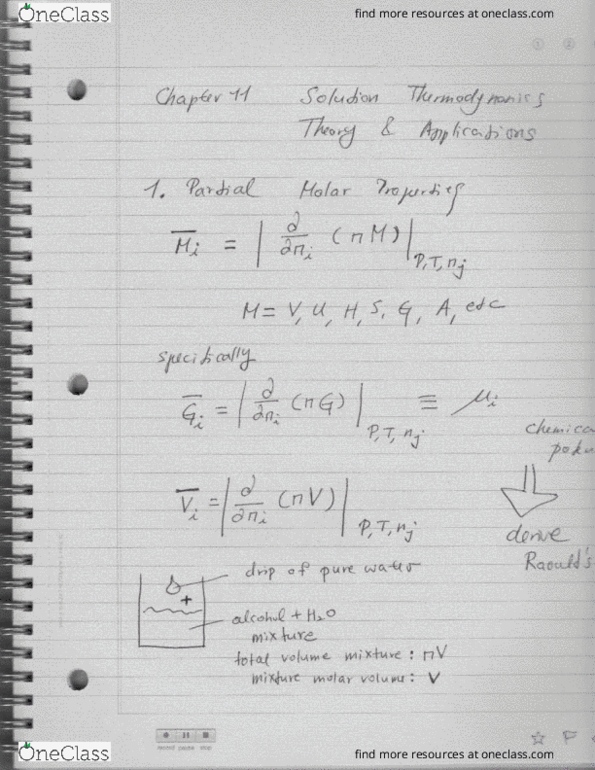 OneClass
find more resources at oneclass.com
Chapter 11 Solution Thermodynamics
Theory & Applications
1. Partial Molar Properties
M̅i = | ∂/∂ni (nM) |P,T,nj
M = V, U, H, S, G, A, etc
specifically
G̅i = | ∂/∂ni (nG) |P,T,nj ≡ μi
chemica
V̅i = | ∂/∂ni (nV) |P,T,nj
derive
Raould's
drip of pure water
+
alcohol + H2O
mixture
total volume mixture: nV
mixture molar volume: V
record pause stop
OneClass
find more resources at oneclass.com